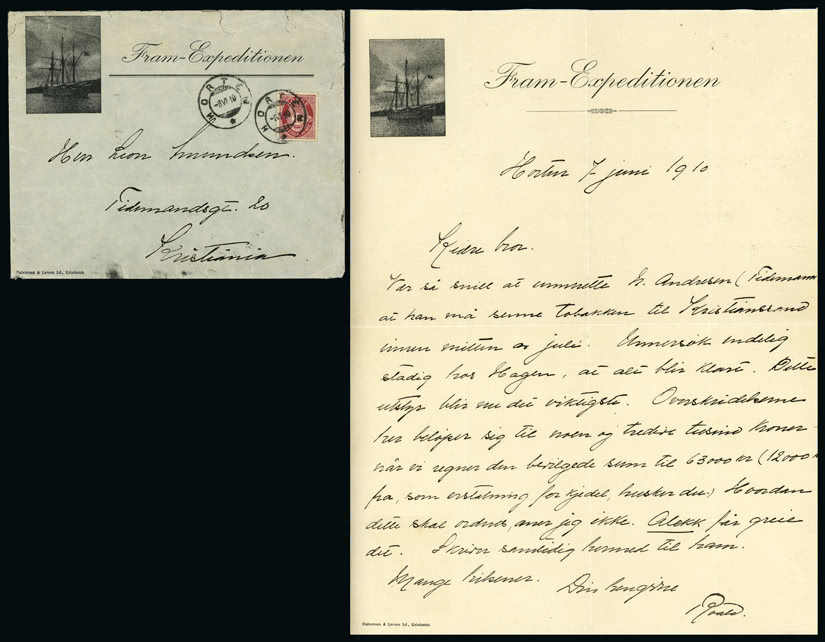 Fram-Expeditionen
HORTEN
-8 VI 10
HORTEN
Herr Leon Amundsen.
Tidemandsgt. 20
Kristiania
Halvorsen & Larsen Ld., Kristiania
Fram-Expeditionen
Horten 7 juni 1910
Kjære bror.
Vær så snill at unnerrette h. Andresen (Tidemann
at han må senne tobakken til Kristianssand
innen mitten av juli. Unnersøk endelig
stadig hos Hagen, at alt blir klart. Dette
utstyr blir nu det viktigste. Overskridelserne
her beløper sig til noen og tredive tusind kroner
når vi regner den bevilgede sum til 63000 kr (12000
fra, som erstatning for kjedel, husker du.) Hvordan
dette skal ordnes, aner jeg ikke. Alekk får greie
det. Skriver samtidig hermed til ham.
Mange hilsener. Din hengivne
Roald.
Halvorsen & Larsen Ld., Kristiania